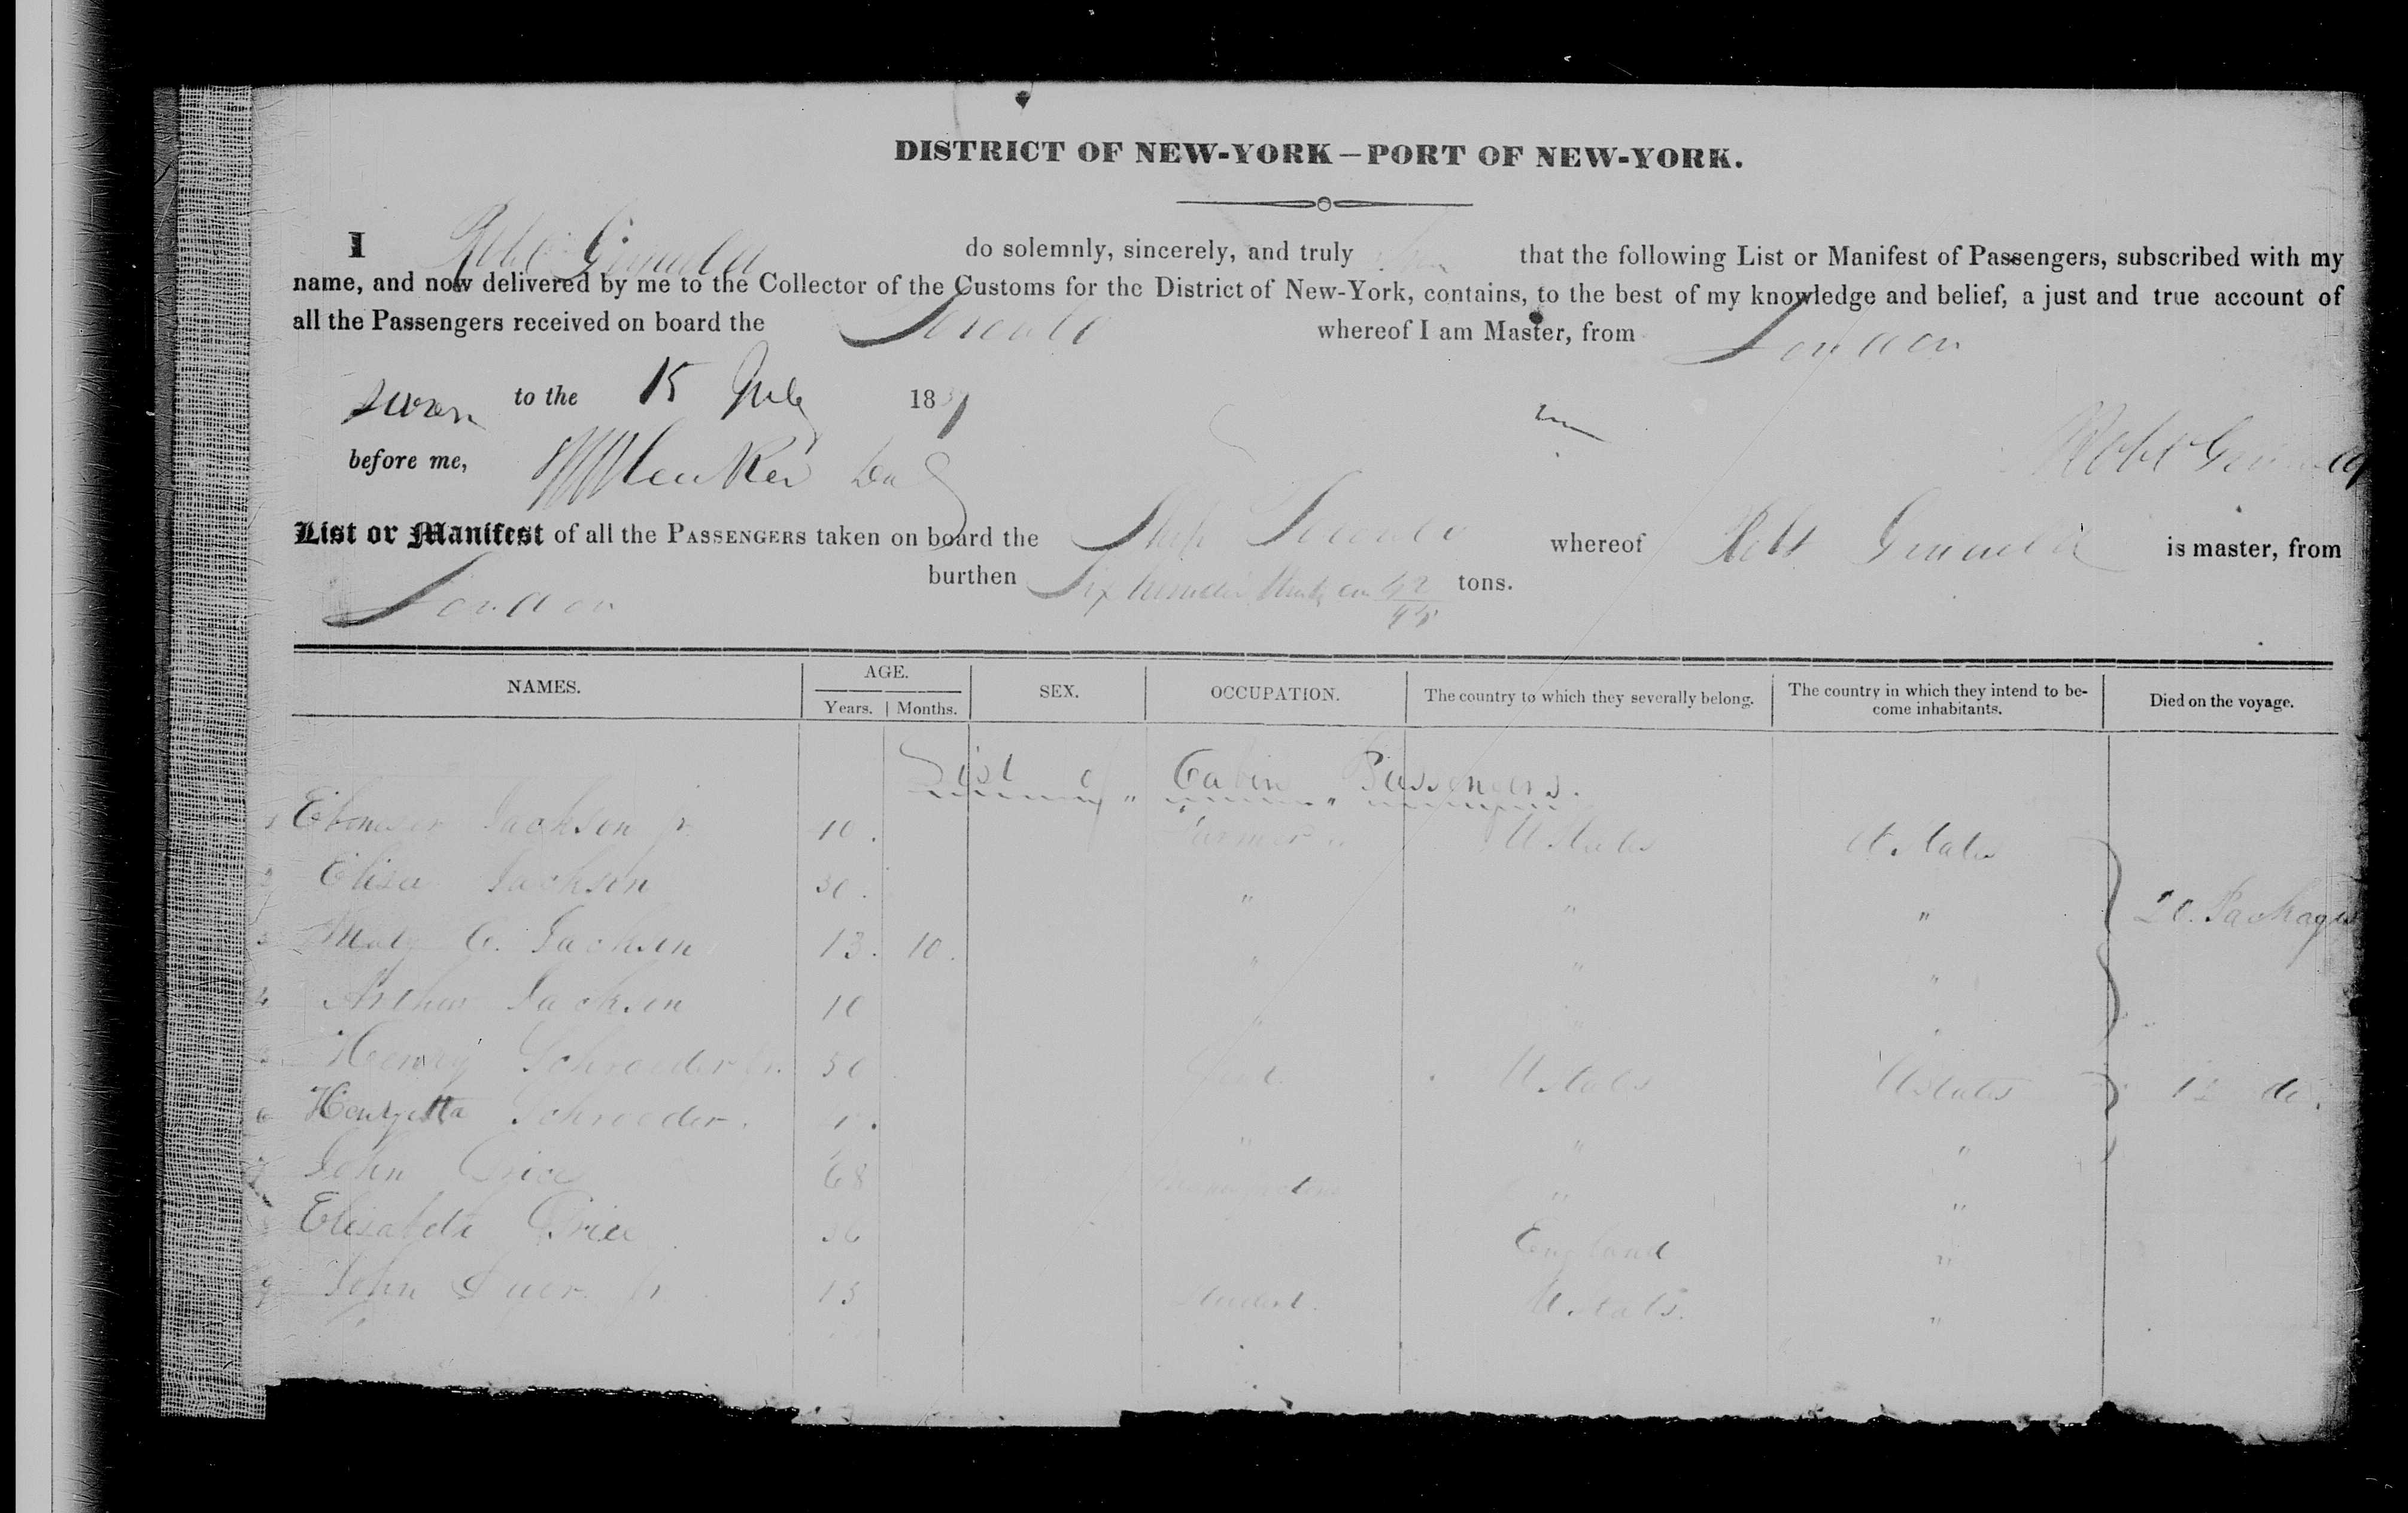 DISTRICT OF NEW-YORK—PORT OF NEW-YORK.
I Robt Grinnell do solemnly, sincerely, and truly that the following List or Manifest of Passengers, subscribed with my
name, and now delivered by me to the Collector of the Customs for the District of New-York, contains, to the best of my knowledge and belief, a just and true account of
all the Passengers received on board the Toronto whereof I am Master, from London
sworn to the 15 July 18
before me,
List or Manifest of all the PASSENGERS taken on board the Ship Toronto whereof Robt is master, from
London burthen Six hundred tons.
NAMES. AGE. SEX. OCCUPATION. The country to which they severally belong. The country in which they intend to be- Died on the voyage.
Years. Months. come inhabitants.
List of Cabin Passengers.
1 Ebenezer Jackson jr. Farmer U States U States
2 Eliza Jackson 30. " " " 20. Packages
3 Mary C. Jackson 13. 10. " " "
4 Arthur Jackson 10 " " "
Henry Schroeder 30 U States U States 12 do.
6 Henrietta Schroeder. " " "
7 John Price 68 " "
Elisabeth Price 36 England "
9 John Duer jr 13 Student. U. States. "